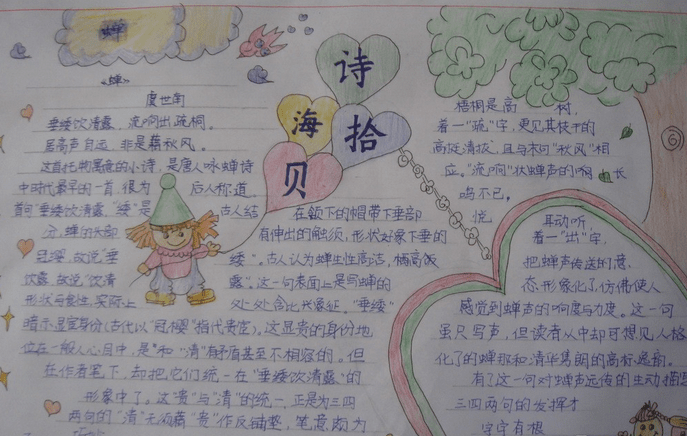 蝉
诗
海
拾
贝
《蝉》
虞世南
垂緌饮清露，流响出疏桐。
居高声自远，非是藉秋风。
这首托物寓意的小诗，是唐人咏蝉诗
中时代最早的一首，很为 后人称道。
首句"垂緌饮清露，"緌"是 古人结
在颔下的帽带下垂部
分，蝉的头部 有伸出的触须，形状好象下垂的
冠缨，故说"垂 緌"。古人认为蝉生性高洁，栖高饮
饮露，故说"饮清 露"。这一句表面上是写蝉的
形状与食性，实际上 处处含比兴象征。"垂緌"
暗示显宦身份(古代以"冠缨"指代贵宦)。这显贵的身份地
位在一般人心目中，是 和"清"有矛盾甚至不相容的。但
在作者笔下，却把它们统一在"垂緌饮清露"的
形象中了。这"贵"与"清"的统一，正是为三四
两句的"清"无须藉"贵"作反铺垫，笔意颇为
梧桐是高 树，
着一"疏"字，更见其枝干的
高挺清拔，且与末句"秋风"相
应。"流响"状蝉声的 长
鸣不已，
悦 耳动听，
着一"出"字，
把蝉声传送的意
态形象化了，仿佛使人
感觉到蝉声的响度与力度。这一句
虽只写声，但读者从中却可想见人格
化了的蝉那 清华隽朗的高标逸韵。
有了这一句对蝉声远传的生动描
三四两句的发挥才
字字有根